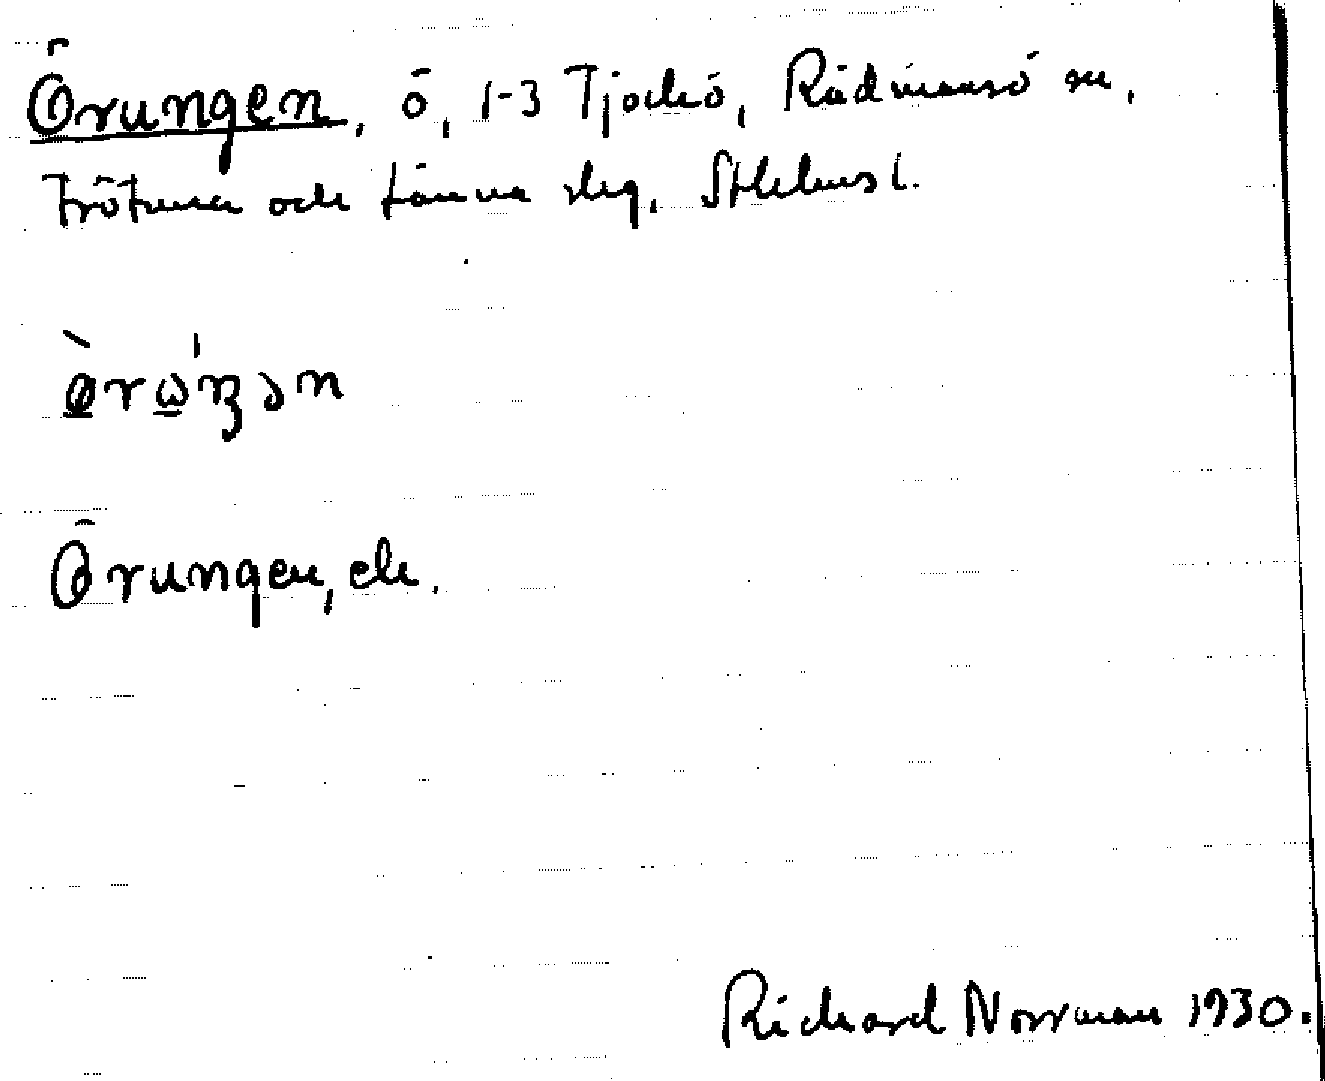 Örungen, ö, 1-3 Tjockö, Rådmansö sn,
Frötuna och Länna slg, Sthlms l.
ø̀rὼŋən
Örungen, ek.
Richard Norrman 1930.